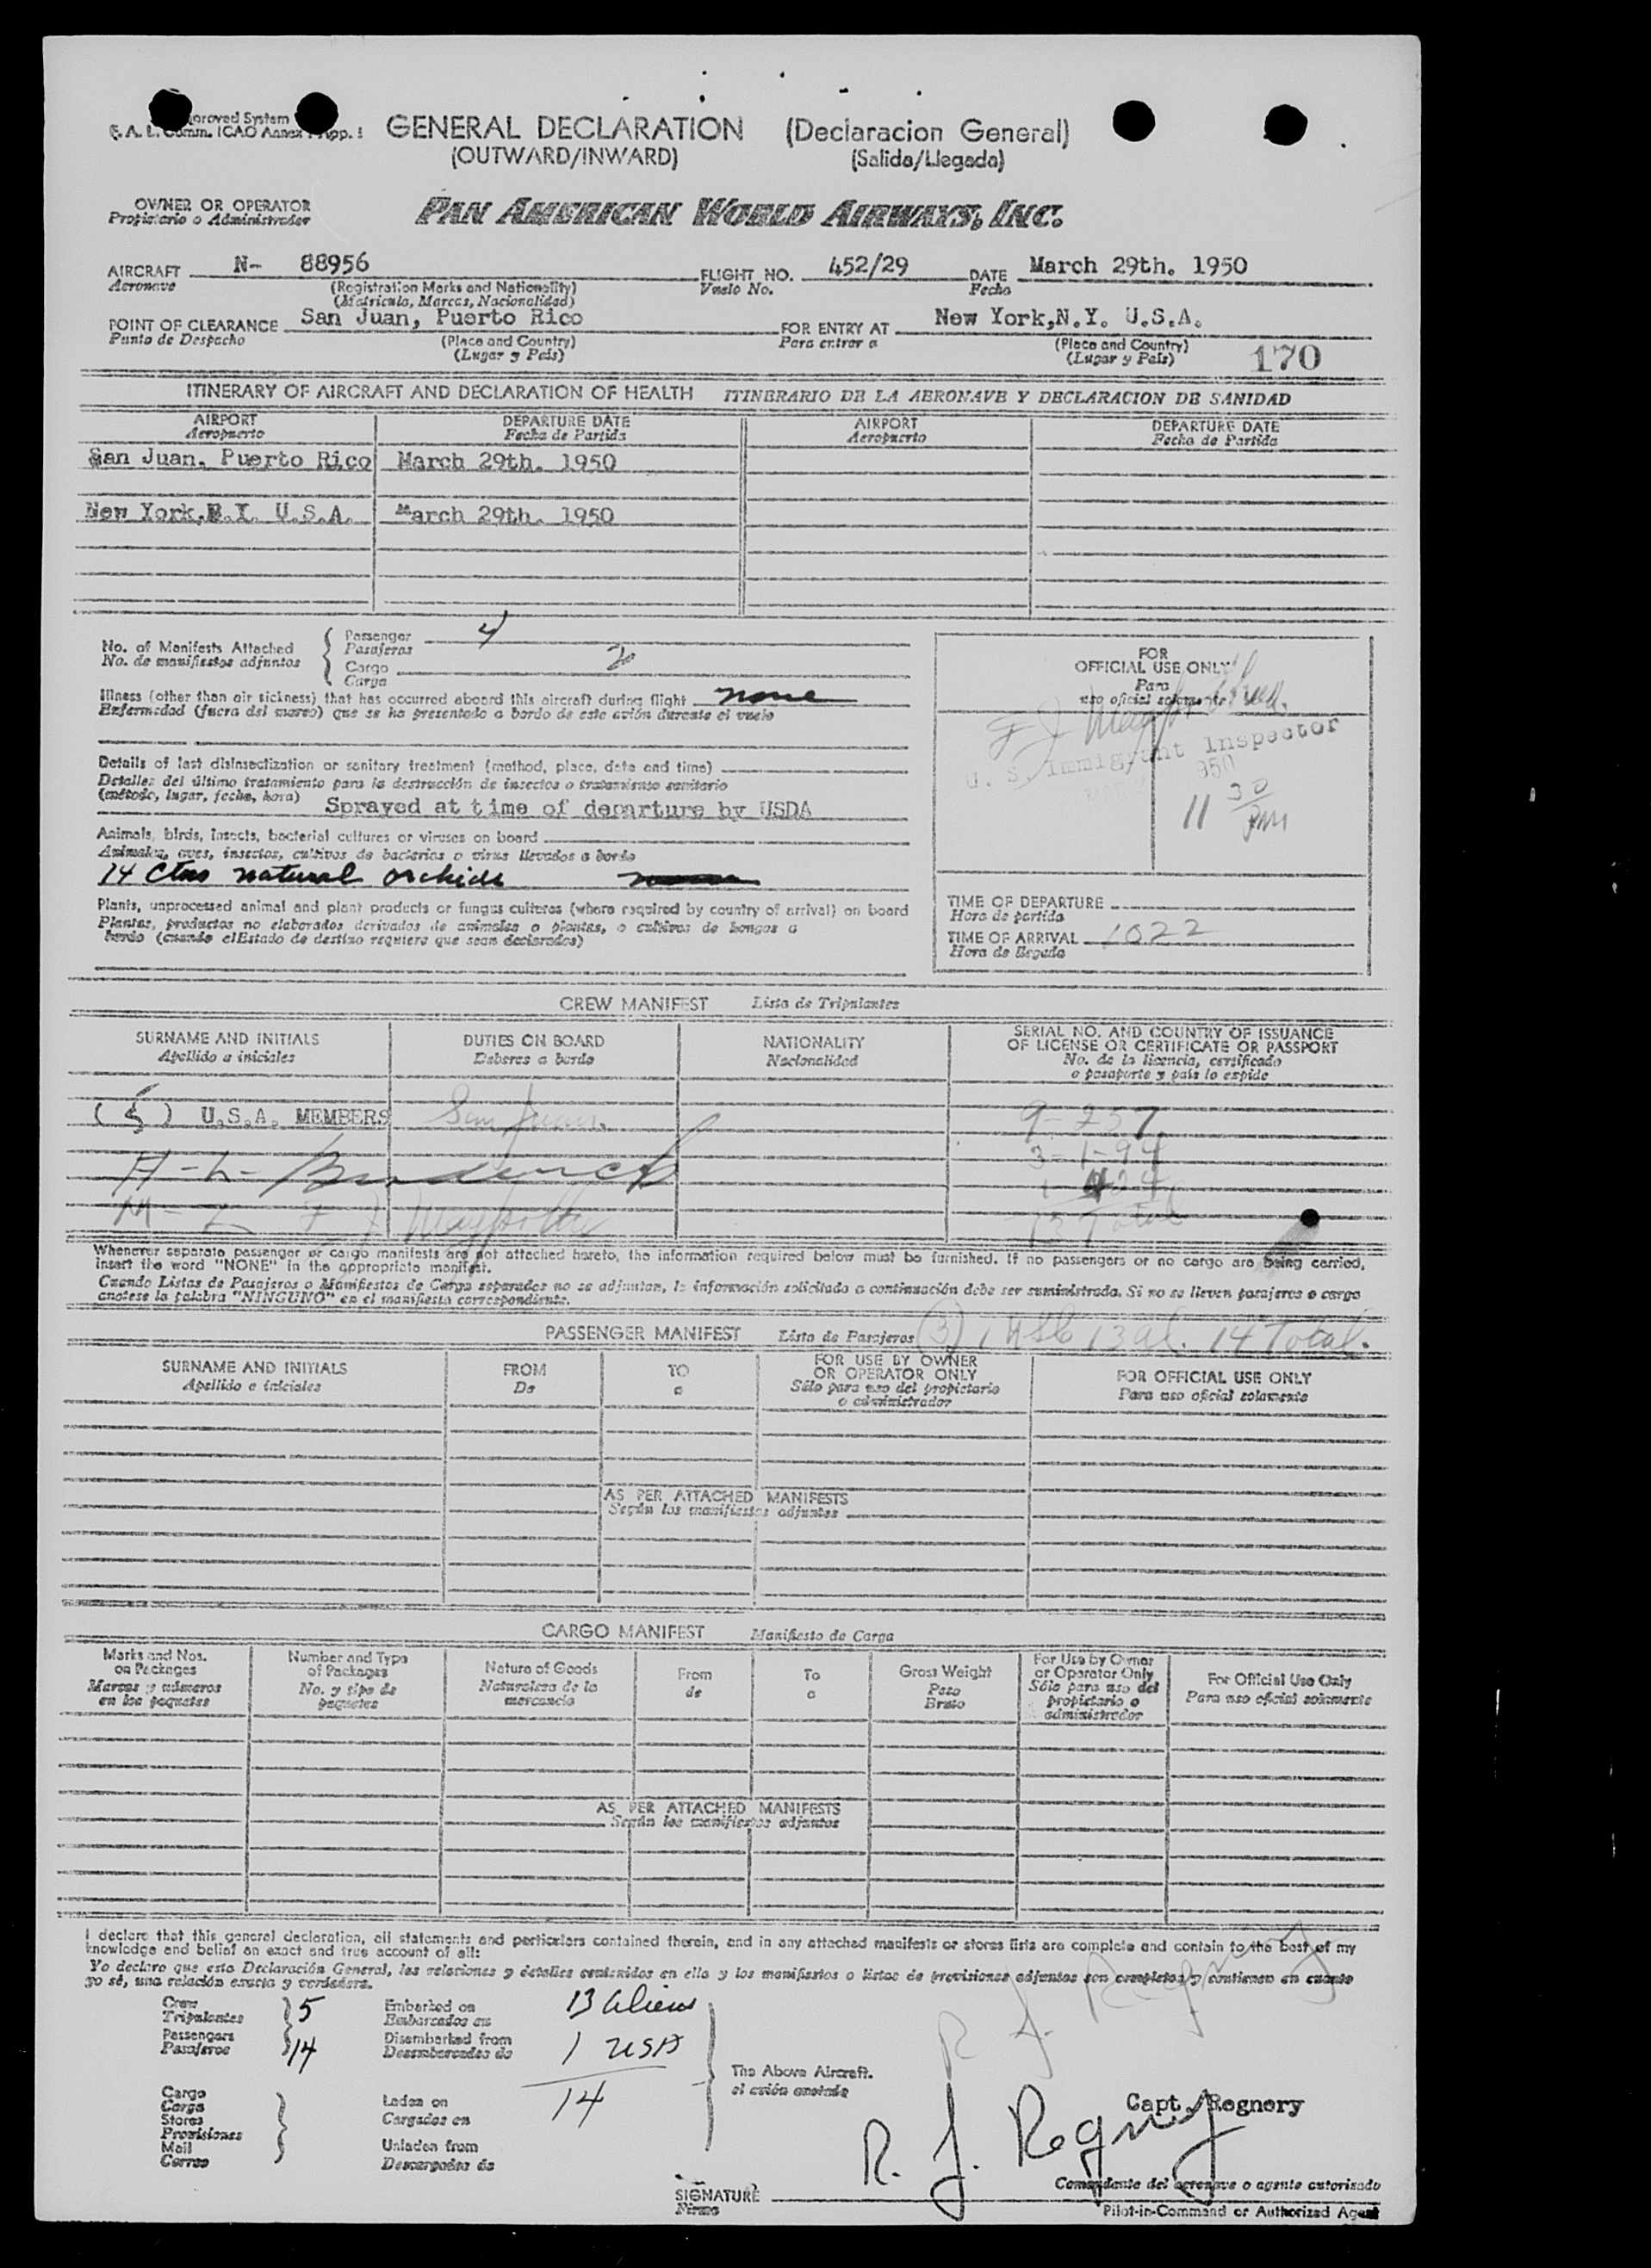 proved System
F. A. L. Comm. ICAO Annex App. 1
GENERAL DECLARATION (Declaracion General)
(OUTWARD/INWARD) (Salida/Llegada)
OWNER OR OPERATOR
Propietario o Administrador
PAN AMERICAN WORLD AIRWAYS, INC.
AIRCRAFT N- 88956 FLIGHT NO. 452/29 DATE March 29th. 1950
Aeronave (Registration Marks and Nationality) Vuelo No. Fecha
(Matricula, Marcas, Nacionalidad)
POINT OF CLEARANCE San Juan, Puerto Rico FOR ENTRY AT New York,N.Y. U.S.A.
Punto de Despacho (Place and Country) Para entrar a (Place and Country)
(Lugar y País) (Lugar y País) 170
ITINERARY OF AIRCRAFT AND DECLARATION OF HEALTH ITINERARIO DE LA AERONAVE Y DECLARACION DE SANIDAD
AIRPORT DEPARTURE DATE AIRPORT DEPARTURE DATE
Aeropuerto Fecha de Partida Aeropuerto Fecha de Partida
San Juan, Puerto Rico March 29th. 1950
New York,N.Y. U.S.A. March 29th. 1950
No. of Manifests Attached Passenger 4
No. de manifiestos adjuntos Pasajeros
Cargo 2
Carga
Illness (other than air sickness) that has occurred aboard this aircraft during flight none
Enfermedad (fuera del mareo) que se ha presentado a bordo de este avión durante el vuelo
Details of last disinsectization or sanitary treatment (method, place, date and time)
Detalles del último tratamiento para la destrucción de insectos o tratamiento sanitario
(método, lugar, fecha, hora) Sprayed at time of departure by USDA
Animals, birds, insects, bacterial cultures or viruses on board
Animales, aves, insectos, cultivos de bacterias o virus llevados a bordo
14 Ctns natural orchids
Plants, unprocessed animal and plant products or fungus cultures (where required by country of arrival) on board
Plantas, productos no elaborados derivados de animales o plantas, o cultivos de hongos a
bordo (cuando el Estado de destino requiere que sean declarados)
FOR
OFFICIAL USE ONLY
Para
uso oficial solamente
U. S. Immigrant Inspector
950
11 30
PM
TIME OF DEPARTURE
Hora de partida
TIME OF ARRIVAL 1022
Hora de llegada
CREW MANIFEST Lista de Tripulantes
SURNAME AND INITIALS DUTIES ON BOARD NATIONALITY SERIAL NO. AND COUNTRY OF ISSUANCE
OF LICENSE OR CERTIFICATE OR PASSPORT
Apellido e iniciales Deberes a bordo Nacionalidad No. de la licencia, certificado
o pasaporte y país lo expide
( 5 ) U.S.A. MEMBERS San Juan. 9-257
3-1-94
13 Total
Whenever separate passenger or cargo manifests are not attached hereto, the information required below must be furnished. If no passengers or no cargo are being carried,
insert the word "NONE" in the appropriate manifest.
Cuando Listas de Pasajeros o Manifiestos de Carga separados no se adjuntan, la información solicitada a continuación debe ser suministrada. Si no se lleven pasajeros o carga
anotese la palabra "NINGUNO" en el manifiesto correspondiente.
PASSENGER MANIFEST Lista de Pasajeros (3) 13 al. 14 Total.
SURNAME AND INITIALS FROM TO FOR USE BY OWNER
OR OPERATOR ONLY FOR OFFICIAL USE ONLY
Apellido e iniciales De a Sólo para uso del propietario
o administrador Para uso oficial solamente
AS PER ATTACHED MANIFESTS
Según los manifiestos adjuntos
CARGO MANIFEST Manifiesto de Carga
Marks and Nos.
on Packages
Marcas y números
en los paquetes
Number and Type
of Packages
No. y tipo de
paquetes
Nature of Goods
Naturaleza de la
mercancia
From
de
To
a
Gross Weight
Peso
Bruto
For Use by Owner
or Operator Only
Sólo para uso del
propietario o
administrador
For Official Use Only
Para uso oficial solamente
AS PER ATTACHED MANIFESTS
Según los manifiestos adjuntos
I declare that this general declaration, all statements and particulars contained therein, and in any attached manifests or stores lists are complete and contain to the best of my
knowledge and belief an exact and true account of all:
Yo declaro que esta Declaración General, las relaciones y detalles contenidos en ella y los manifiestos o listas de provisiones adjuntos son completos y contienen en cuanto
yo sé, una relación exacta y verdadera.
R. J. Regnery
Crew 5 Embarked on 13 aliens
Tripulantes Embarcados en
Passengers 14 Disembarked from 1 USA
Pasajeros Desembarcados de
14
The Above Aircraft.
el avión anotado
Cargo
Carga
Stores
Provisiones
Mail
Correo
Laden on
Cargados en
Unladen from
Descargados de
Capt. Regnery
R. J. Regnery
Comandante del aeronave o agente autorizado
SIGNATURE
Firma
Pilot-in-Command or Authorized Agent